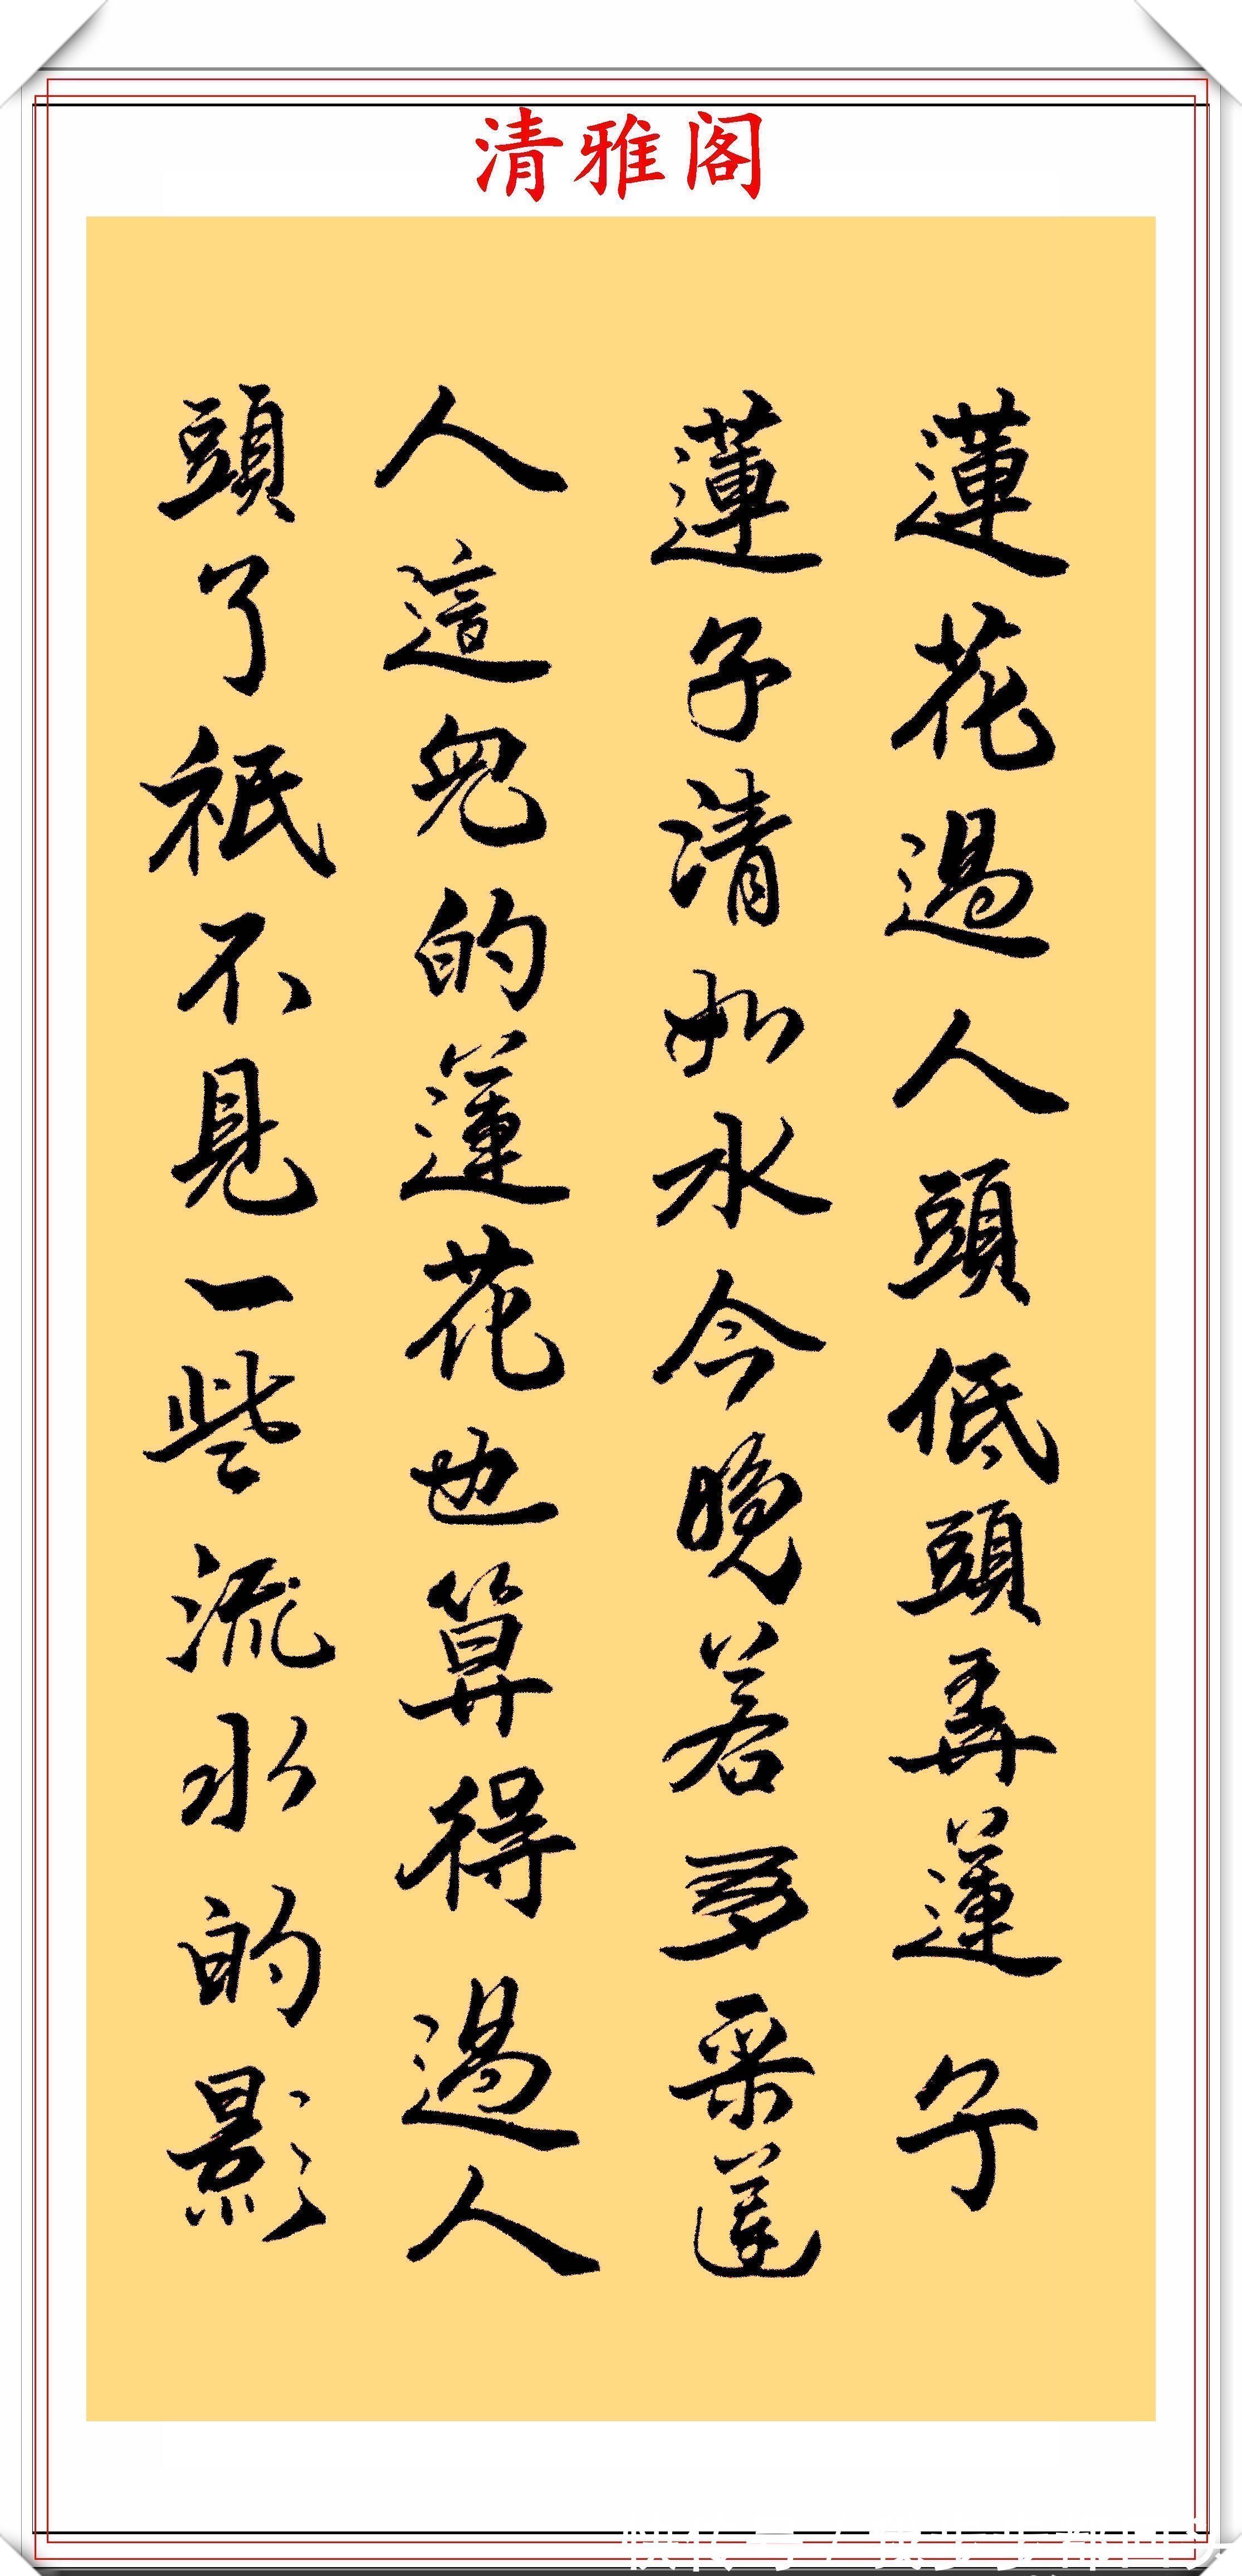 清雅阁
蓮花過人頭低頭弄蓮子
蓮子清如水今晚若多采蓮
人這兒的蓮花也算得過人
頭了祇不見一些流水的影